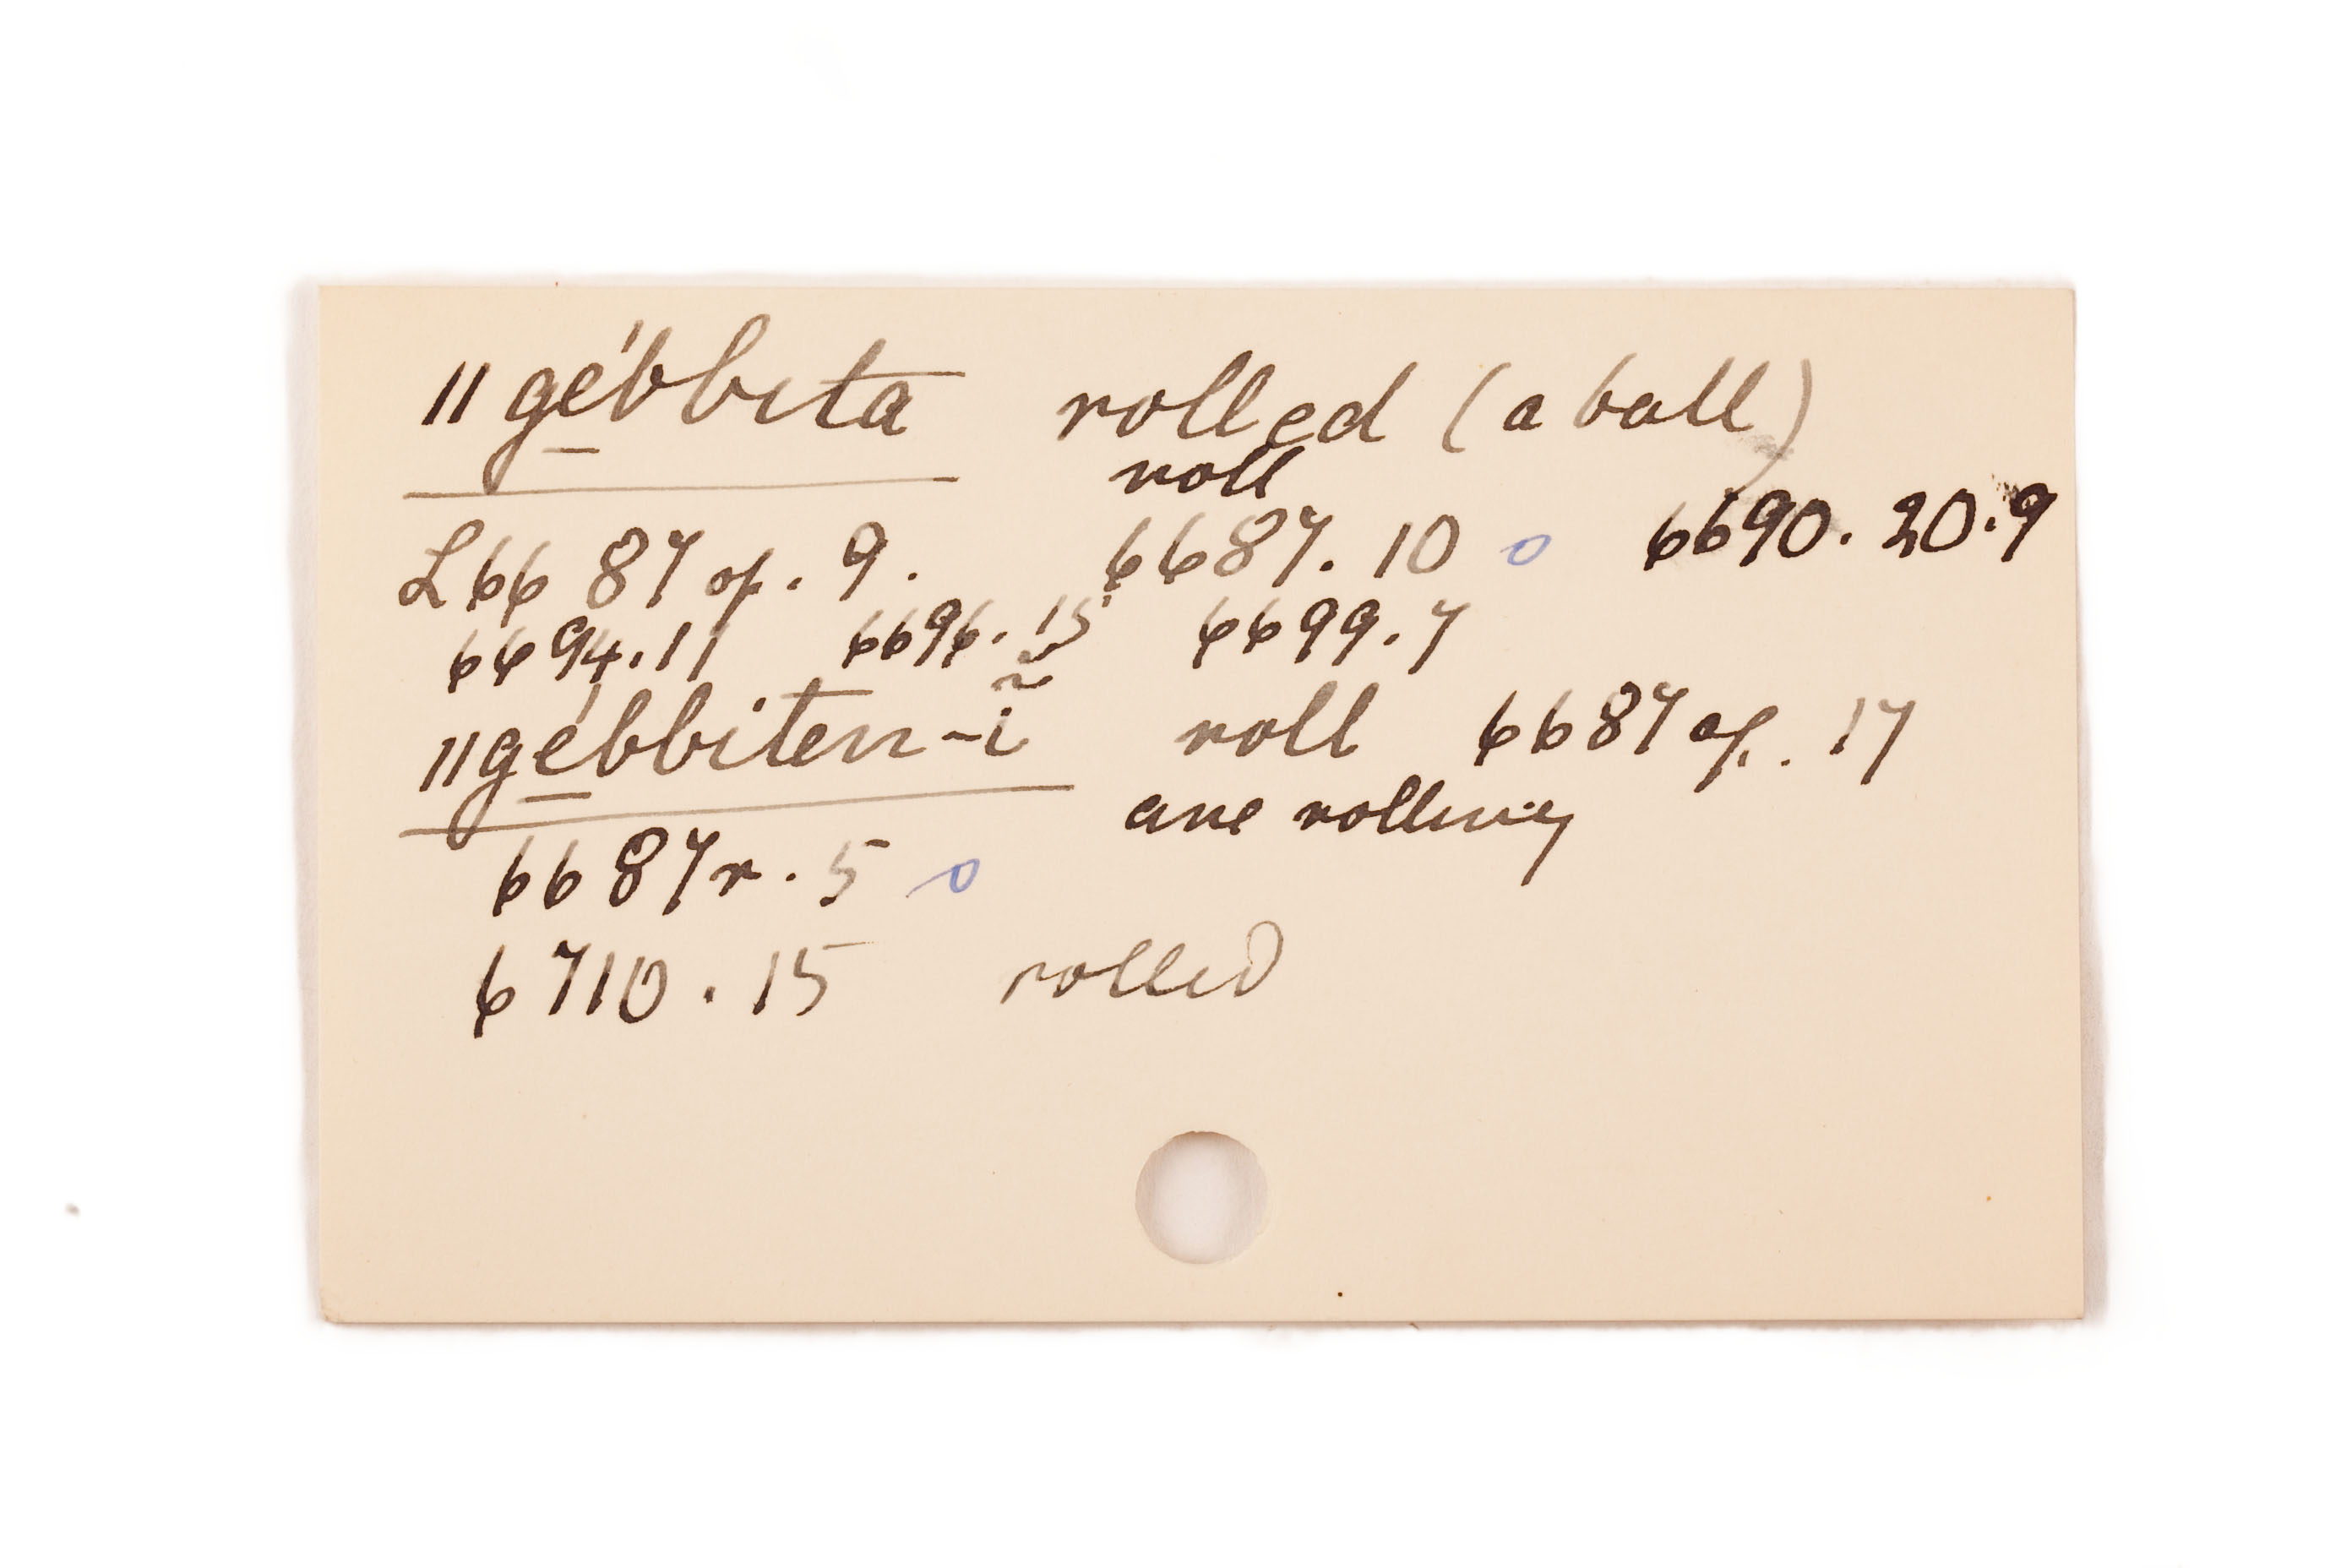 ǁgé̱bbita rolled (a ball)
roll
L 6687 op. 9. 6687. 10 o 6690. 20. 9
6694. 11 6696. 15 6699. 7
ǁgé̱bbiten-ĩ roll 6687 op. 17
are rolling
6687 r. 5 o
6710. 15 rolled